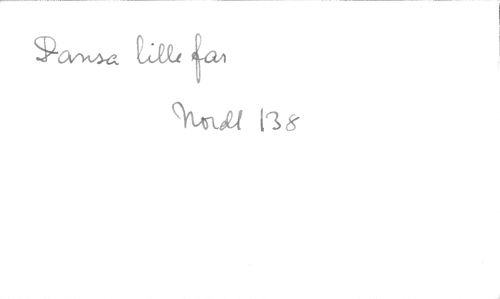 Dansa lille far
Nordl 138